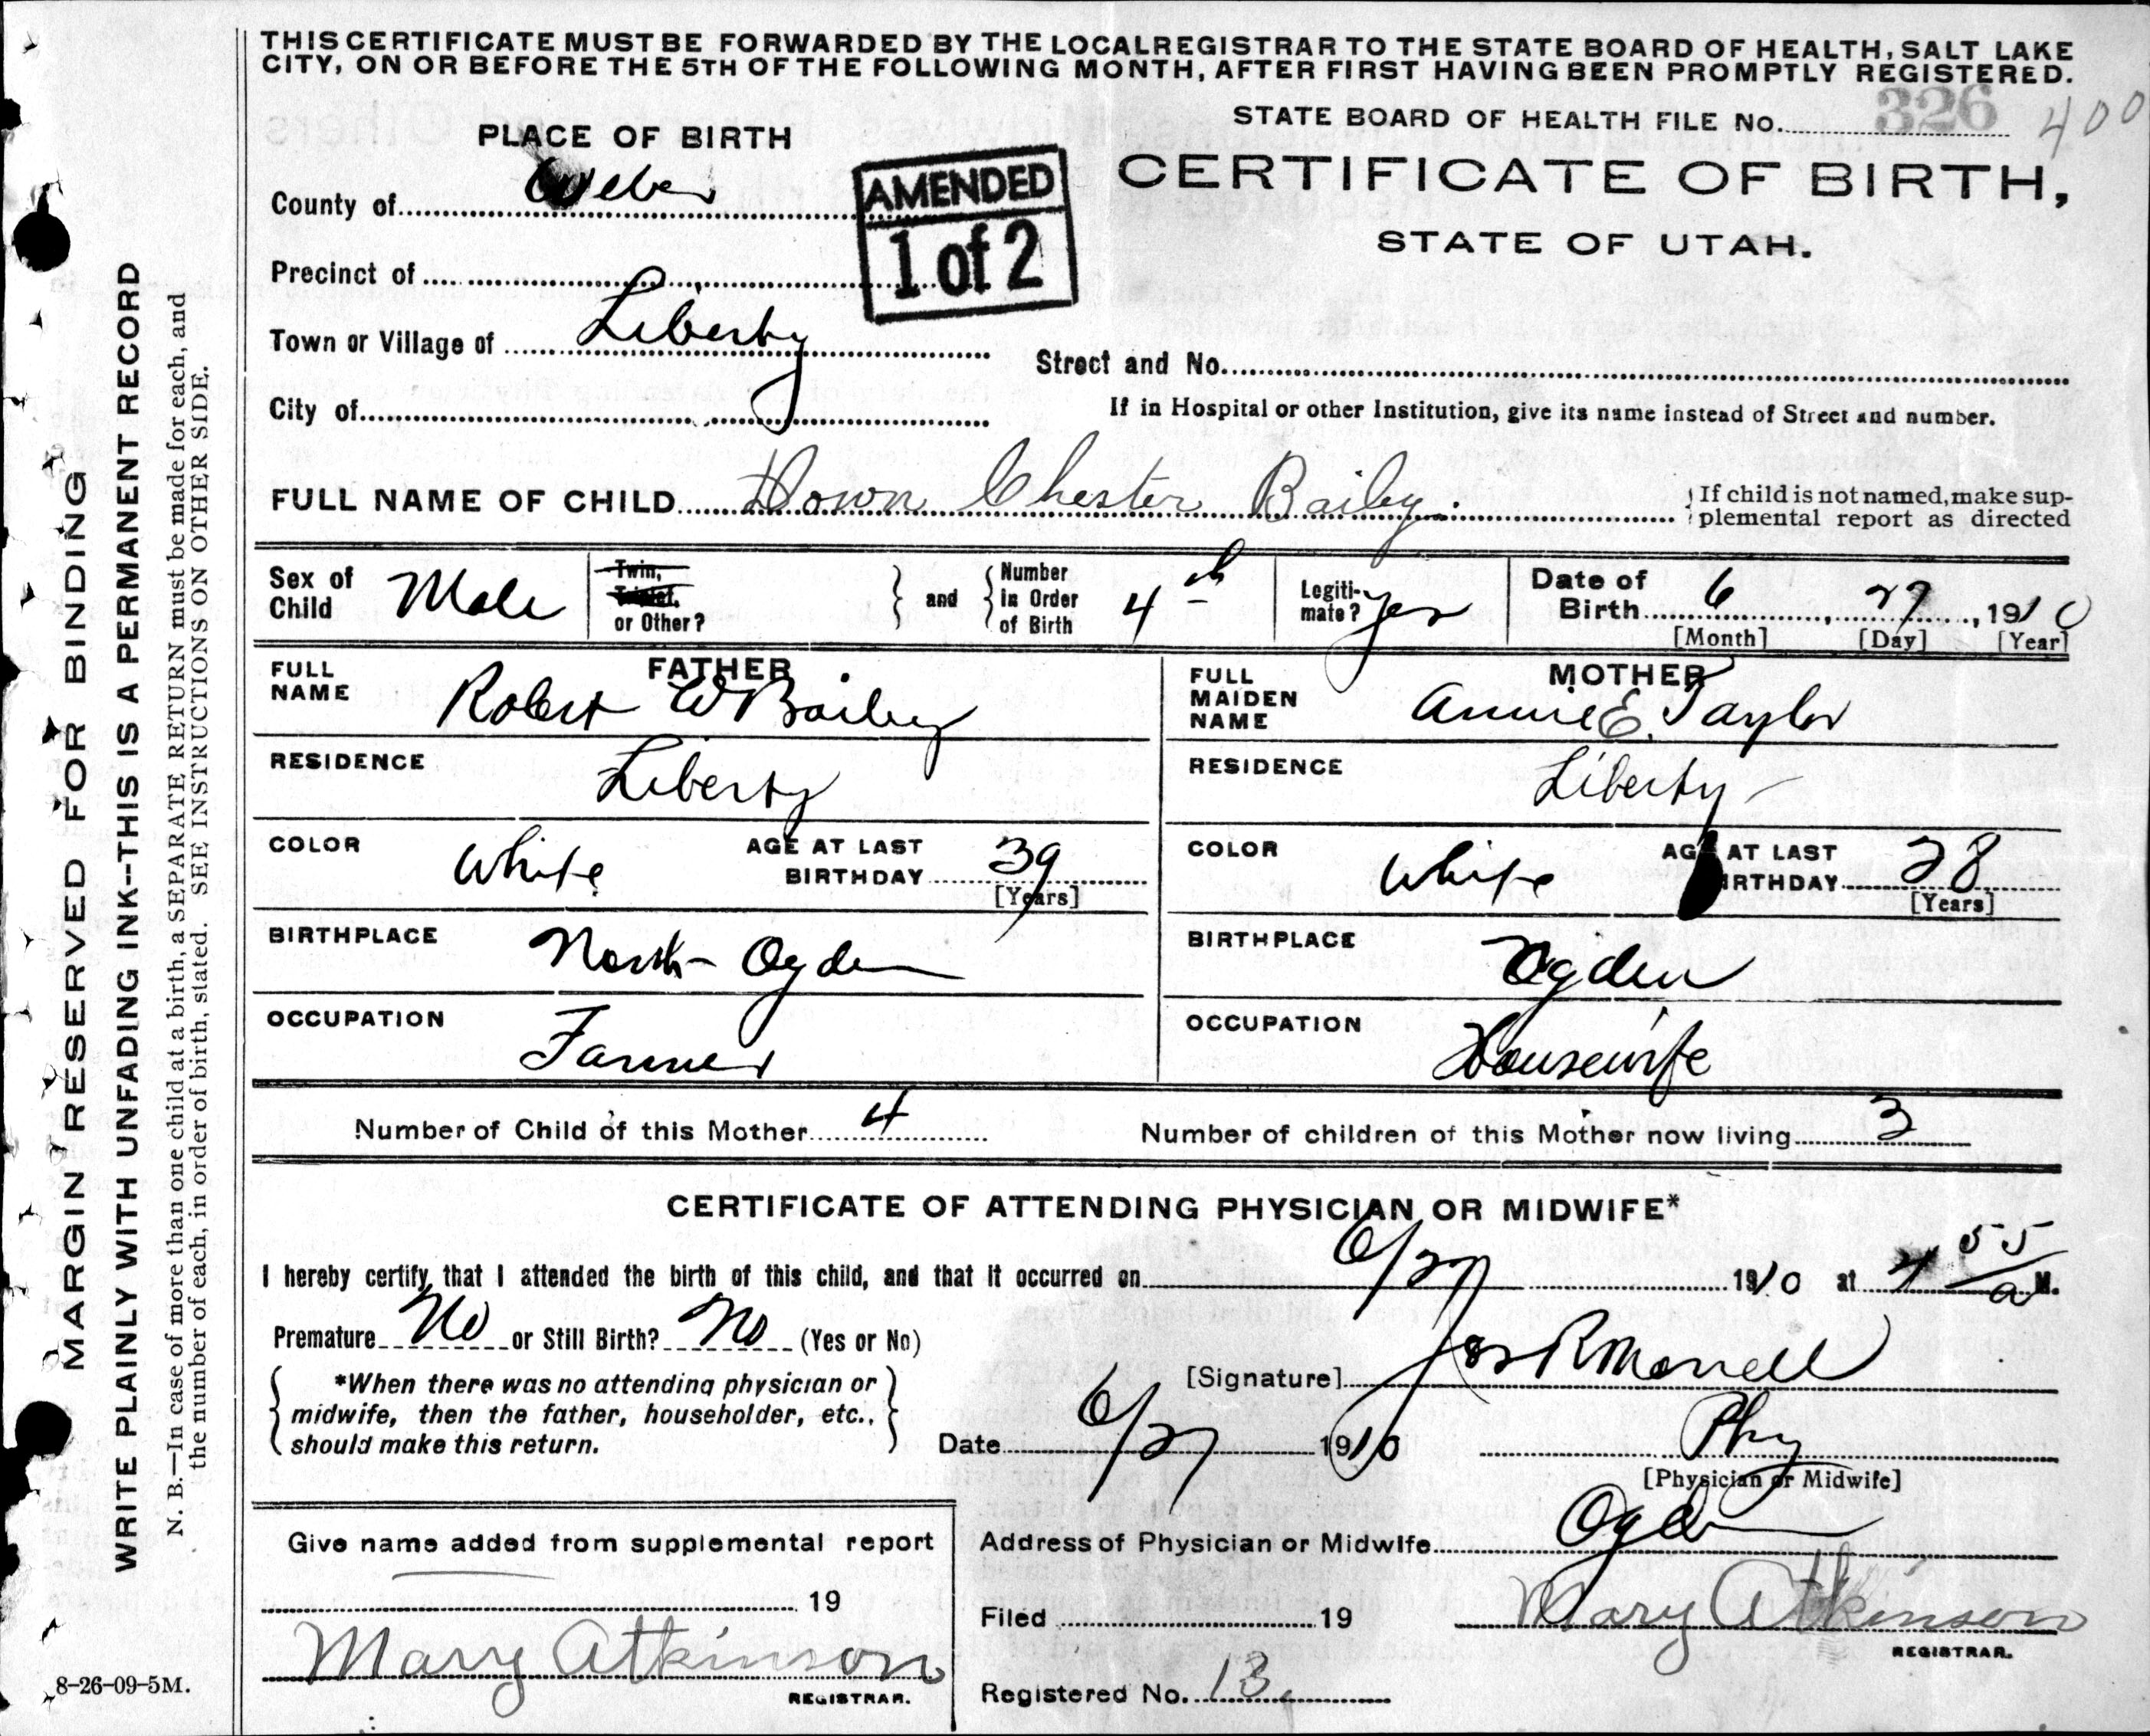 THIS CERTIFICATE MUST BE FORWARDED BY THE LOCAL REGISTRAR TO THE STATE BOARD OF HEALTH, SALT LAKE
CITY, ON OR BEFORE THE 5TH OF THE FOLLOWING MONTH, AFTER FIRST HAVING BEEN PROMPTLY REGISTERED.
STATE BOARD OF HEALTH FILE No. 326 400
PLACE OF BIRTH
CERTIFICATE OF BIRTH,
STATE OF UTAH.
County of Weber
AMENDED
1 of 2
Precinct of
Town or Village of Liberty
Street and No.
City of
If in Hospital or other Institution, give its name instead of Street and number.
FULL NAME OF CHILD Chester Bailey.
If child is not named, make sup-
plemental report as directed
Sex of Child Male
Twin, Triplet, or Other?
and
Number in Order of Birth 4th
Legiti-mate? yes
Date of Birth 6 27, 1910
[Month] [Day] [Year]
FATHER
FULL NAME Robert W Bailey
RESIDENCE Liberty
COLOR White
AGE AT LAST BIRTHDAY 39
[Years]
BIRTHPLACE North Ogden
OCCUPATION Farmer
MOTHER
FULL MAIDEN NAME Annie E. Taylor
RESIDENCE Liberty
COLOR White
AGE AT LAST BIRTHDAY 28
[Years]
BIRTHPLACE Ogden
OCCUPATION Housewife
Number of Child of this Mother 4
Number of children of this Mother now living 3
CERTIFICATE OF ATTENDING PHYSICIAN OR MIDWIFE*
I hereby certify, that I attended the birth of this child, and that it occurred on 6/27 1910 at 4 55 a M.
Premature No or Still Birth? No (Yes or No)
*When there was no attending physician or
midwife, then the father, householder, etc.,
should make this return.
[Signature] Jos R Morrell
Date 6/27 1910
Phy
[Physician or Midwife]
Address of Physician or Midwife Ogden
Give name added from supplemental report
19
Mary Atkinson
REGISTRAR.
Filed 19
Mary Atkinson
REGISTRAR.
Registered No. 13.
8-26-09-5M.
MARGIN RESERVED FOR BINDING
WRITE PLAINLY WITH UNFADING INK--THIS IS A PERMANENT RECORD
N. B.—In case of more than one child at a birth, a SEPARATE RETURN must be made for each, and
the number of each, in order of birth, stated. SEE INSTRUCTIONS ON OTHER SIDE.